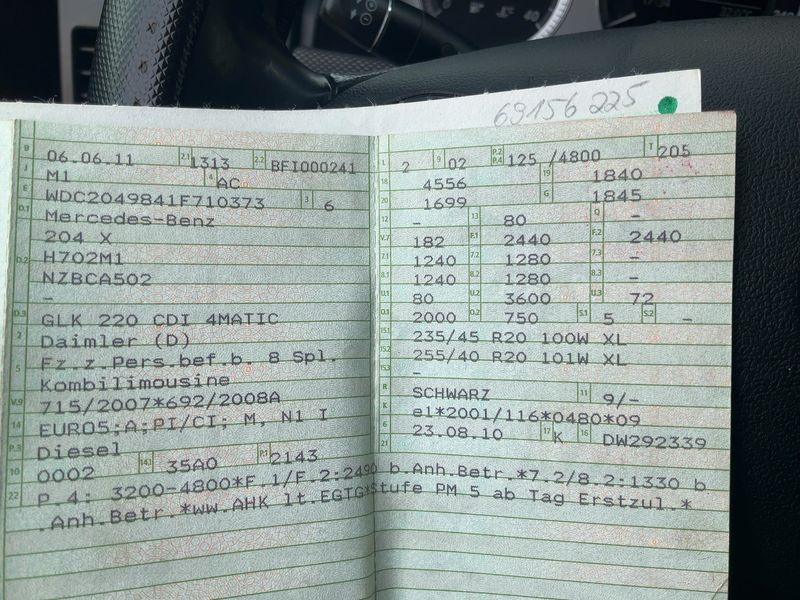 69156 225
B 06.06.11 2.1 1313 2.2 BFI000241
J M1 4 AC
E WDC2049841F710373 3 6
D.1 Mercedes-Benz
204 X
D.2 H702M1
NZBCA502
-
D.3 GLK 220 CDI 4MATIC
2 Daimler (D)
5 Fz.z.Pers.bef.b. 8 Spl.
Kombilimousine
V.9 715/2007*692/2008A
14 EURO5;A;PI/CI; M, N1 I
P.3 Diesel
10 0002 14.1 35A0 P.1 2143
L 2 9 02 P.2 P.4 125 /4800 T 205
18 4556 19 1840
20 1699 G 1845
12 - 13 80 Q -
V.7 182 F.1 2440 F.2 2440
7.1 1240 7.2 1280 7.3 -
8.1 1240 8.2 1280 8.3 -
U.1 80 U.2 3600 U.3 72
O.1 2000 O.2 750 S.1 5 S.2 -
15.1 235/45 R20 100W XL
15.2 255/40 R20 101W XL
15.3 -
R SCHWARZ 11 9/-
K e1*2001/116*0480*09
6 23.08.10 17 K 16 DW292339
21
22 P.4: 3200-4800*F.1/F.2:2490 b.Anh.Betr.*7.2/8.2:1330 b
.Anh.Betr.*ww.AHK lt.EGTG*Stufe PM 5 ab Tag Erstzul.*